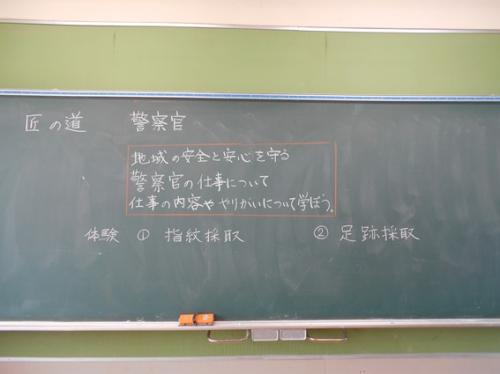 匠の道 警察官
地域の安全と安心を守る
警察官の仕事について
仕事の内容ややりがいについて学ぼう。
体験 ① 指紋採取 ② 足跡採取